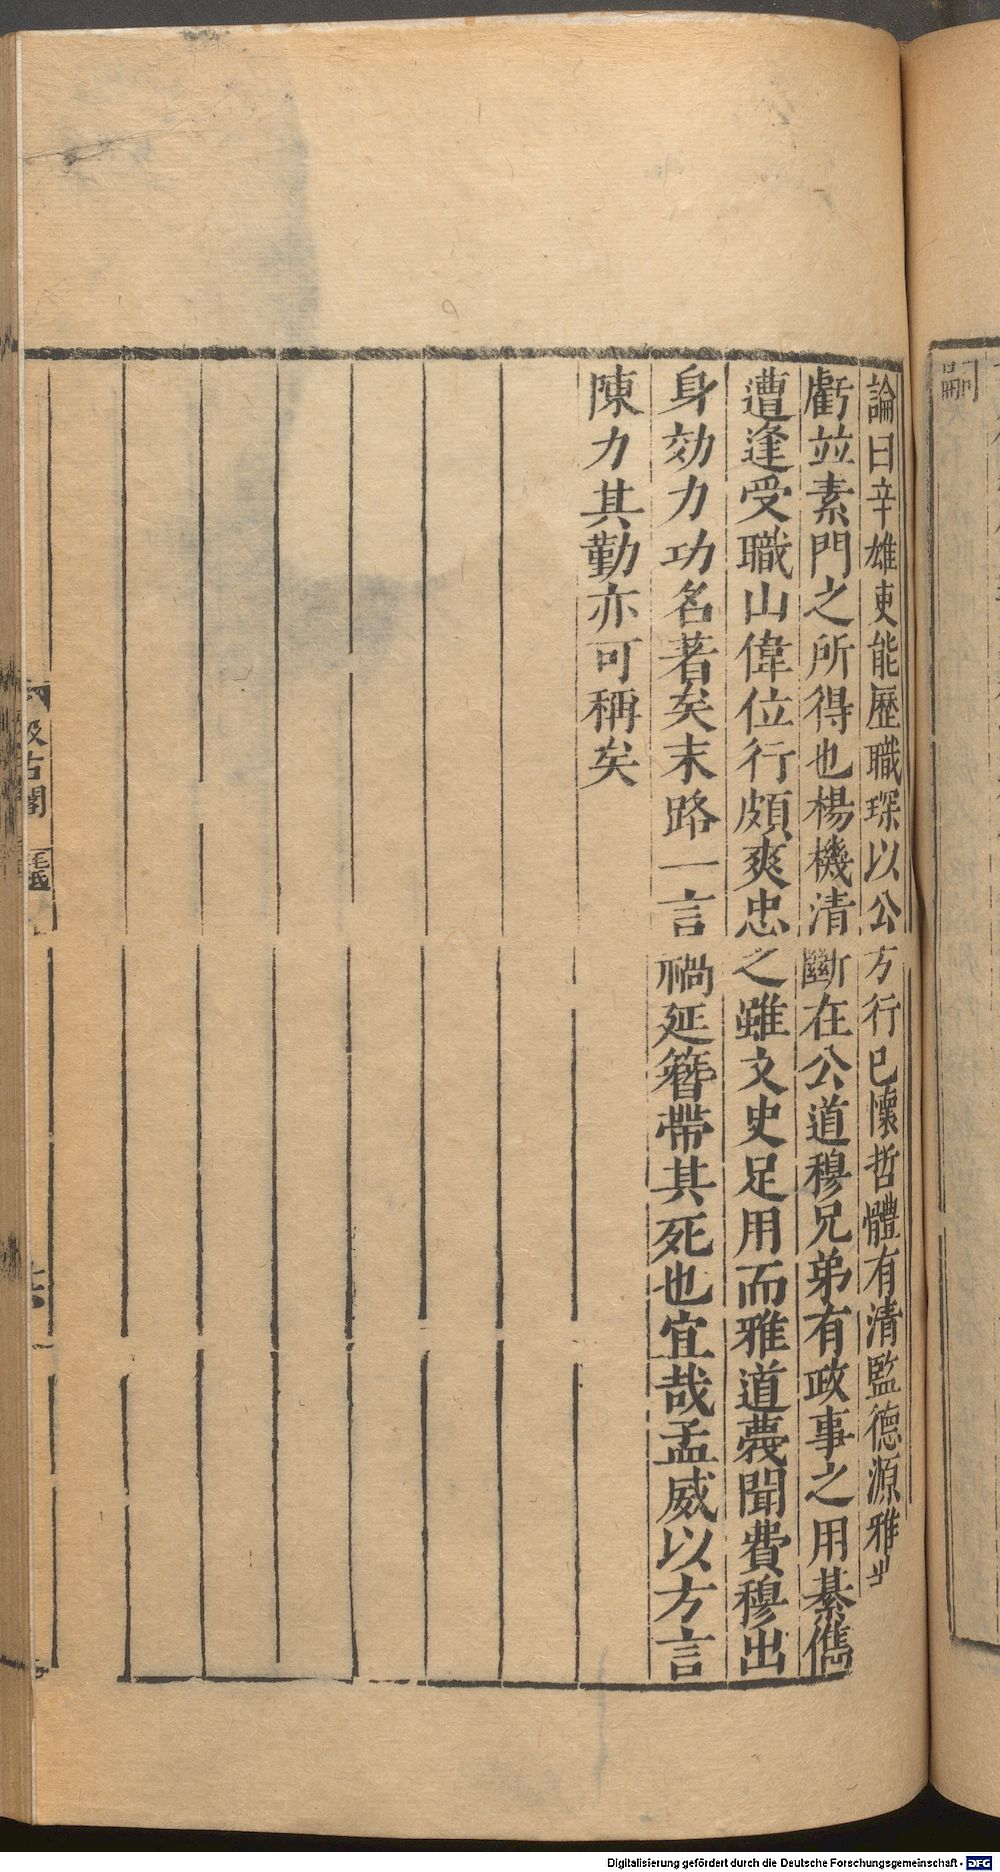 論曰辛雄吏能歷職琛以公方行巳懷哲體有清監德源雅
虧竝素門之所得也楊機清斷在公道穆兄弟有政事之用綦儁
遭逢受職山偉位行頗爽忠之雖文史足用而雅道蔑聞費穆出
身效力功名著矣末路一言禍延簪帶其死也宜哉孟威以方言
陳力其勤亦可稱矣
汲古閣
Digitalisierung gefördert durch die Deutsche Forschungsgemeinschaft - DFG